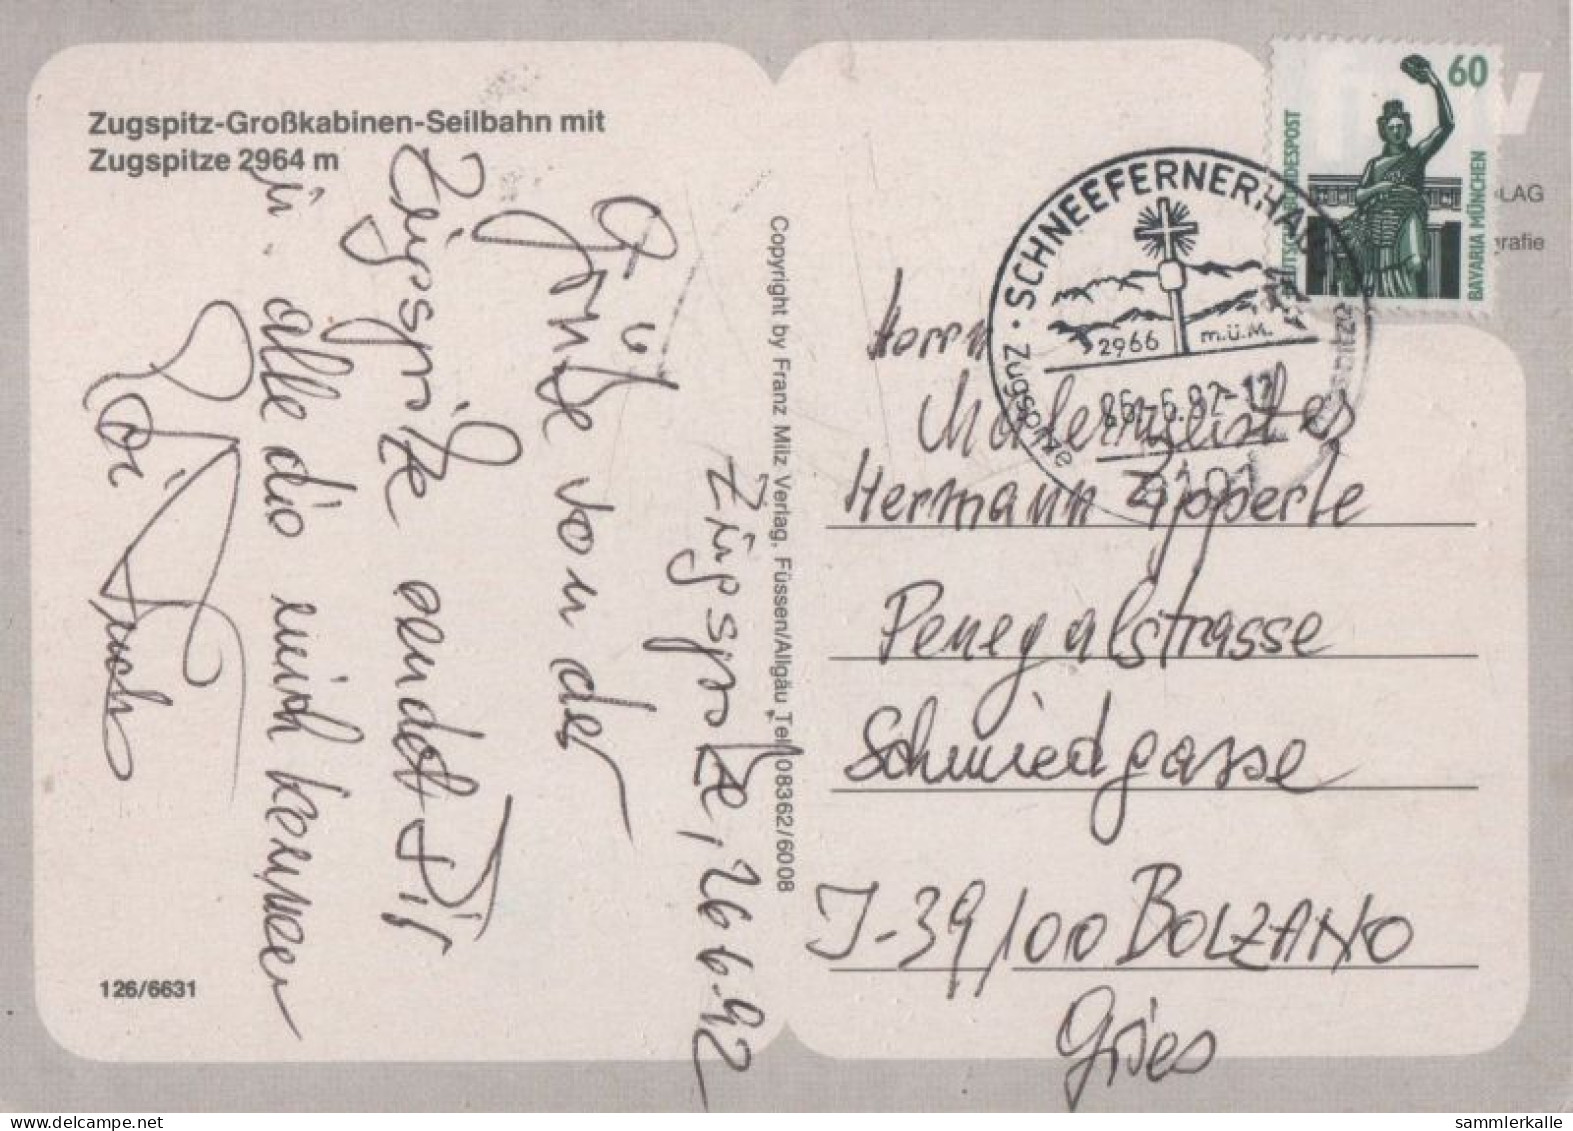 Zugspitz-Großkabinen-Seilbahn mit
Zugspitze 2964 m
Zugspitze, 26.6.92
Grüße von der
Zugspitze sendet Dir
u. alle die mich kennen
126/6631
Copyright by Franz Milz Verlag, Füssen/Allgäu Tel. 08362/6008
60
DEUTSCHE BUNDESPOST
BAVARIA MÜNCHEN
LAG
grafie
· SCHNEEFERNERHAU
Zugspitze
2966 m.ü.M.
26.-6.92-12
8101
Herrn
Malermeister
Hermann Zipperle
Penegalstrasse
Schmiedgasse
I-39/100 BOLZANO
Gries
sammlerkalle